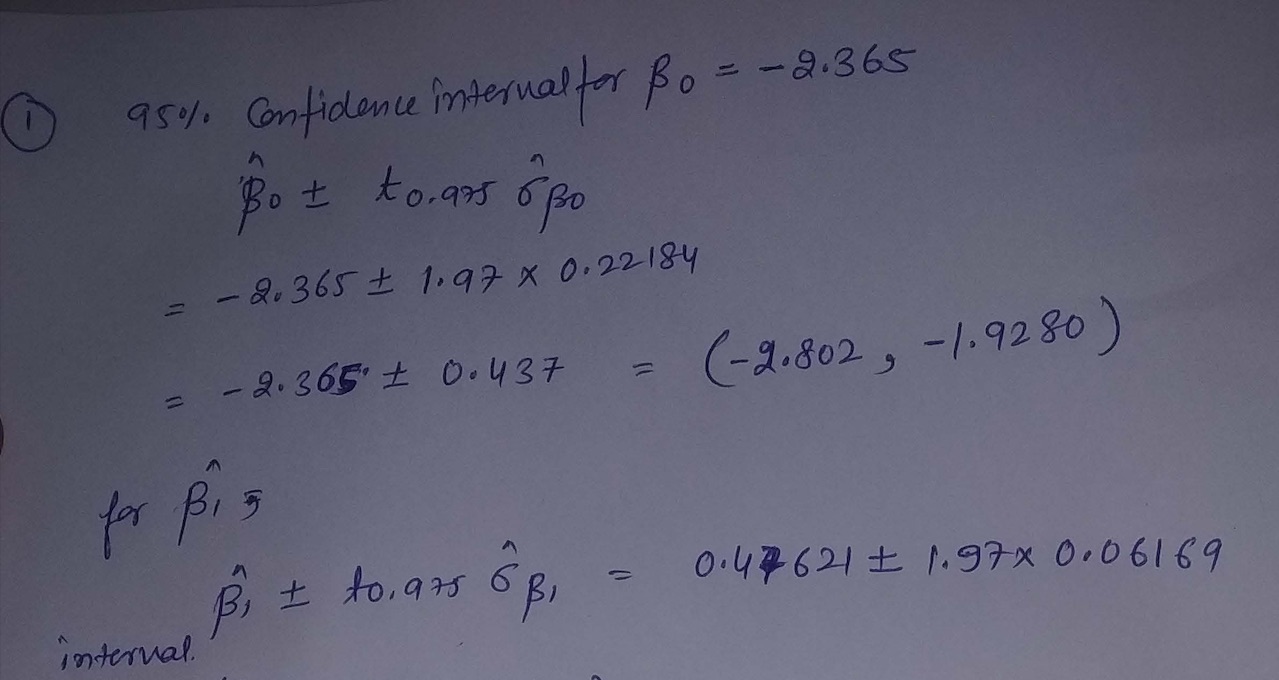 ① 95% Confidence interval for β0 = -2.365
β̂0 ± t0.975 σ̂β0
= -2.365 ± 1.97 × 0.22184
= -2.365 ± 0.437 = (-2.802, -1.9280)
for β̂1,
β̂1 ± t0.975 σ̂β1 = 0.47621 ± 1.97 × 0.06169
interval.